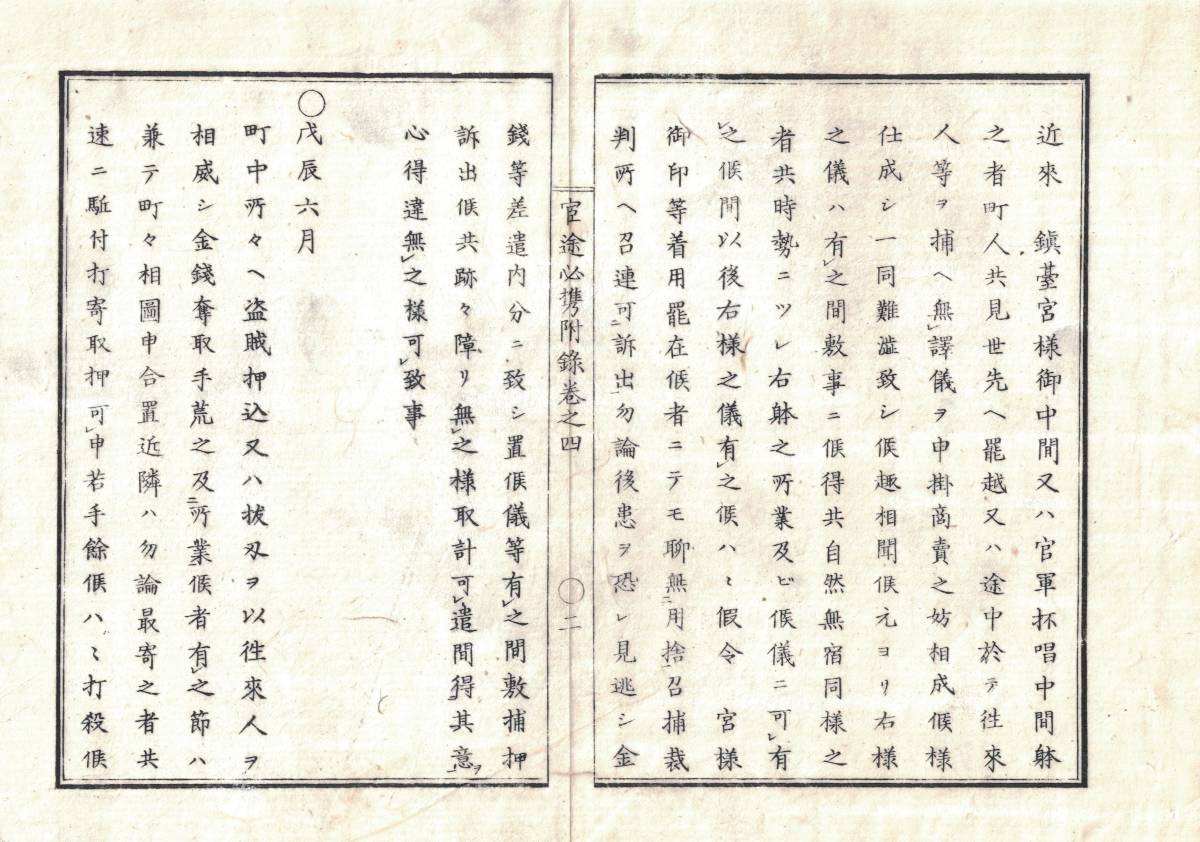 近來　鎭臺宮様御中間又ハ官軍抔唱中間躰
之者町人共見世先ヘ罷越又ハ途中於テ徃來
人等ヲ捕ヘ無レ譯儀ヲ申掛商賣之妨相成候様
仕成シ一同難澁致シ候趣相聞候元ヨリ右様
之儀ハ有レ之間敷事ニ候得共自然無宿同様之
者共時勢ニツレ右躰之所業及ビ候儀ニ可レ有
レ之候間以後右様之儀有レ之候ハヽ假令　宮様
御印等着用罷在候者ニテモ聊無二用捨一召捕裁
判所ヘ召連可二訴出一勿論後患ヲ恐レ見逃シ金
官途必携附錄卷之四
〇二
錢等差遣内分ニ致シ置候儀等有レ之間敷捕押
訴出候共跡々障リ無レ之様取計可レ遣間得二其意一ヲ
心得違無レ之様可レ致事
〇
戊辰六月
町中所々ヘ盗賊押込又ハ拔刄ヲ以徃來人ヲ
相威シ金錢奪取手荒之及二所業一候者有レ之節ハ
兼テ町々相圖申合置近隣ハ勿論最寄之者共
速ニ駈付打寄取押可レ申若手餘候ハヽ打殺候